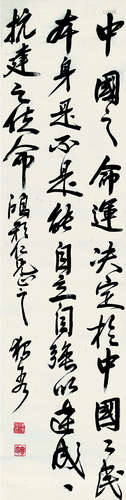 中國之命運決定於中國之民
本身是不是能自立自強以達成
抗建之使命 鴻彩仁兄正之